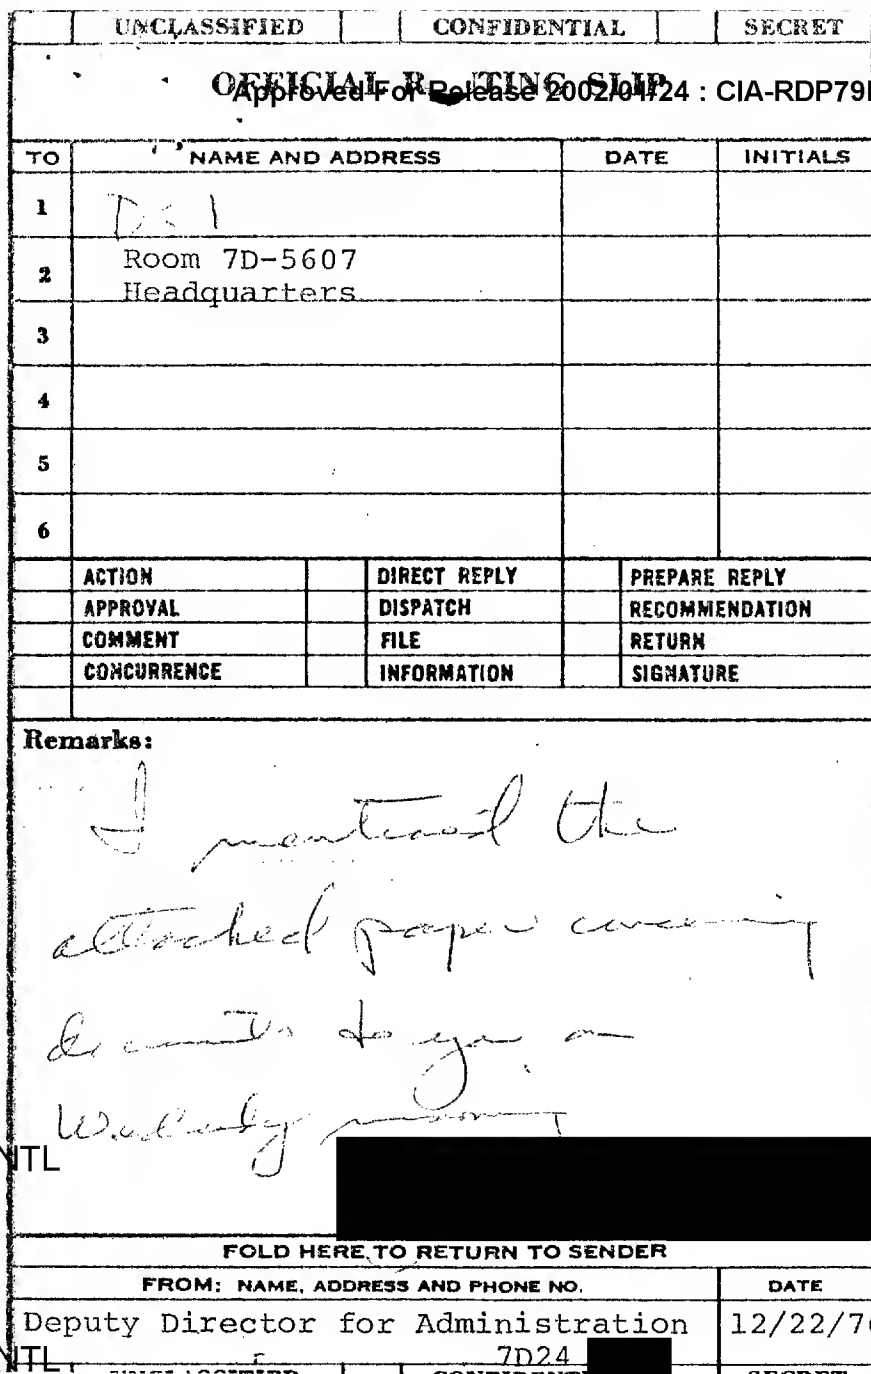 UNCLASSIFIED CONFIDENTIAL SECRET
OFFICIAL ROUTING SLIP
Approved For Release 2002/01/24 : CIA-RDP79
TO NAME AND ADDRESS DATE INITIALS
1
2 Room 7D-5607
Headquarters
3
4
5
6
ACTION DIRECT REPLY PREPARE REPLY
APPROVAL DISPATCH RECOMMENDATION
COMMENT FILE RETURN
CONCURRENCE INFORMATION SIGNATURE
Remarks:
I mentioned the
attached paper concerning
to you on
Wednesday morning
NTL
FOLD HERE TO RETURN TO SENDER
FROM: NAME, ADDRESS AND PHONE NO. DATE
Deputy Director for Administration 12/22/76
NTL 7D24
UNCLASSIFIED CONFIDENTI SECRET